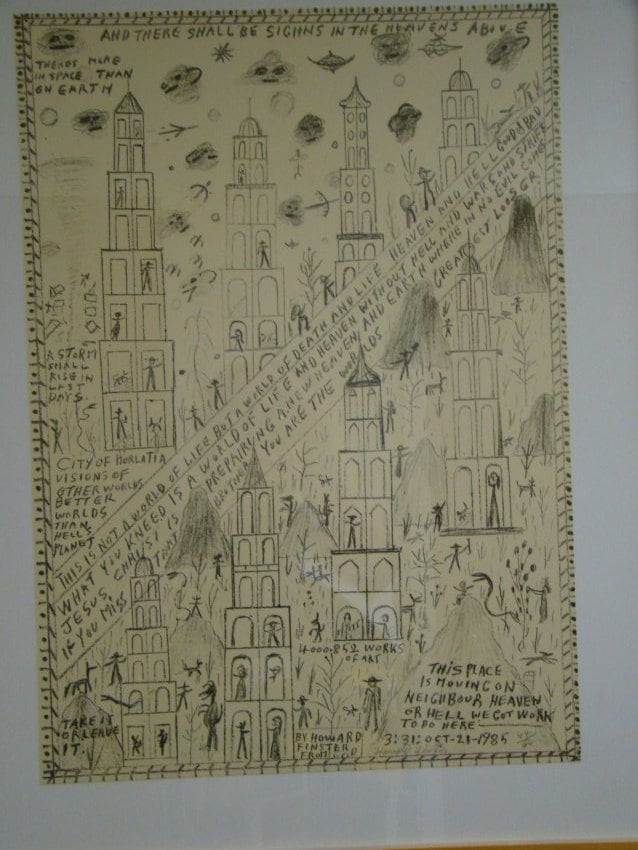 AND THERE SHALL BE SIGHNS IN THE HEAVENS ABOVE
THERES MORE
IN SPACE THAN
ON EARTH
THIS IS NOT A WORLD OF LIFE BUT A WORLD OF DEATH AND LIFE HEAVEN AND HELL GOOD & BAD
WHAT YOU KNEED IS A WORLD OF LIFE AND HEAVEN WITHOUT HELL AND WARS AND
JESUS CHRIST IS PREPAIRING A NEW HEAVEN AND EARTH WHERE IN NO EVIL COMES
IF YOU MISS THAT BROTHER YOU ARE THE WORLDS GREATEST LOOSER
A STORM
SHALL
RISE IN
LAST
DAYS.
CITY OF HORLATIA
VISIONS OF
OTHER WORLDS
BETTER
WORLDS
THAN
HELLS
PLANET
4000.852 WORKS
OF ART
THIS PLACE
IS MOVING ON
NEIGHBOUR HEAVEN
OR HELL WE GOT WORK
TO DO HERE
3:31: OCT-21-1985
TAKE IT
OR LEAVE
IT.
BY HOWARD
FINSTER
FROM GOD